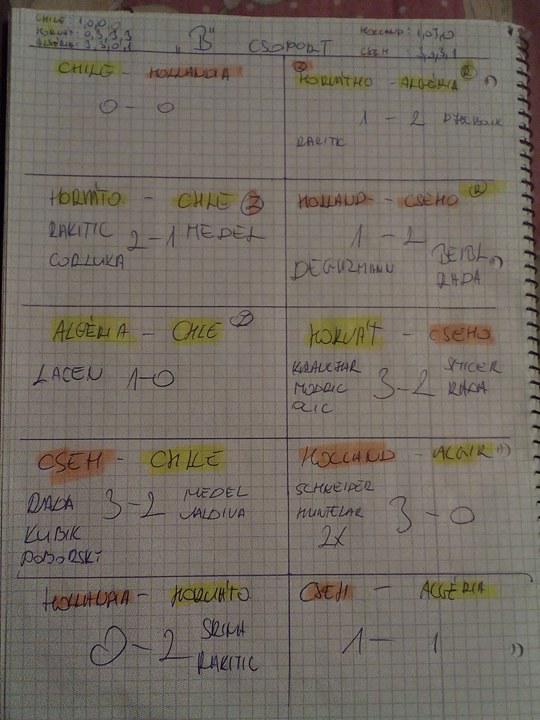 CHILE: 1,0,0,0
HORVÁT: 0,3,3,3
ALGÉRIA: 3,3,0,1
HOLLAND: 1,0,3,0
CSEH: 3,0,3,1
"B" CSOPORT
CHILE - HOLLANDIA
0 - 0
HORVÁTHO - ALGÉRIA
1 - 2
RAKITIC
HORVÁTO - CHILE
RAKITIC 2-1 MEDEL
CORLUKA
HOLLAND - CSEHO
1 - 2
DEGUZMANN
BEJBL
RADA
ALGÉRIA - CHLE
LACEN 1-0
HORVÁT - CSEHO
KRANCHAR
MODRIC 3-2
OLIC
SMICER
RADA
CSEH - CHILE
RADA 3-2 MEDEL
VALDIVA
KUBIK
POBORSKI
HOLLAND - ALGIR
SCHNEIDER
HUNTELAR 3 - 0
2X
HOLLANDIA - HORVÁTO
0-2 SRNA
RAKITIC
CSEH - ALGÉRIA
1 - 1